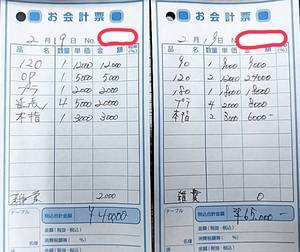 お会計票
2月19日 No.
品名 数量 単価 金額
120 1 12000 12000
OP 1 5000 5000
1 2000 2000
4 5000 20000
本指 1 3000 3000
雑費 2000
テーブル 税込合計金額 ¥40000
お会計票
2月9日 No.
品名 数量 単価 金額
90 1 9000 9000
120 2 12000 24000
180 1 18000 18000
4 2000 8000
本指 2 3000 6000-
雑費 0
テーブル 税込合計金額 ¥65,000-